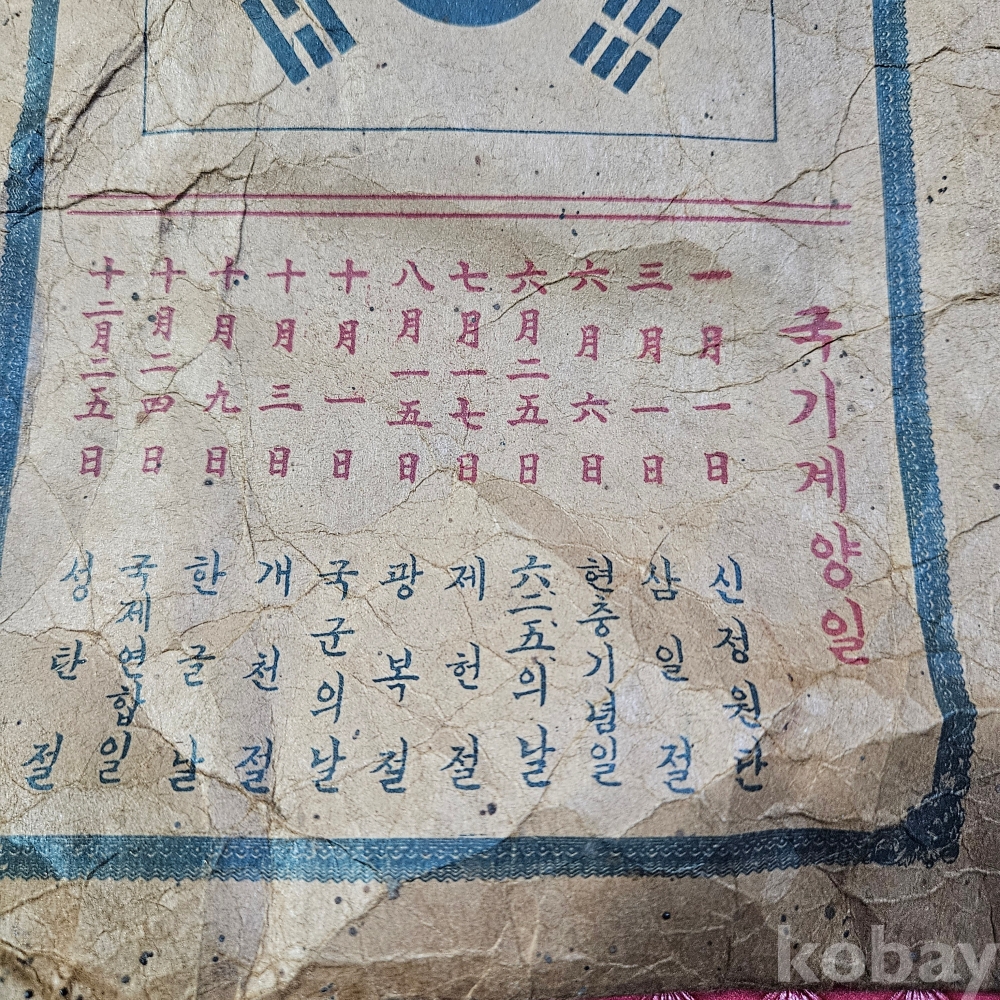 국기계양일
一月一日 신정원단
三月一日 삼일절
六月六日 현충기념일
六月二五日 六二五의날
七月一七日 제헌절
八月一五日 광복절
十月一日 국군의날
十月三日 개천절
十月九日 한글날
十月二四日 국제연합일
十二月二五日 성탄절
kobay